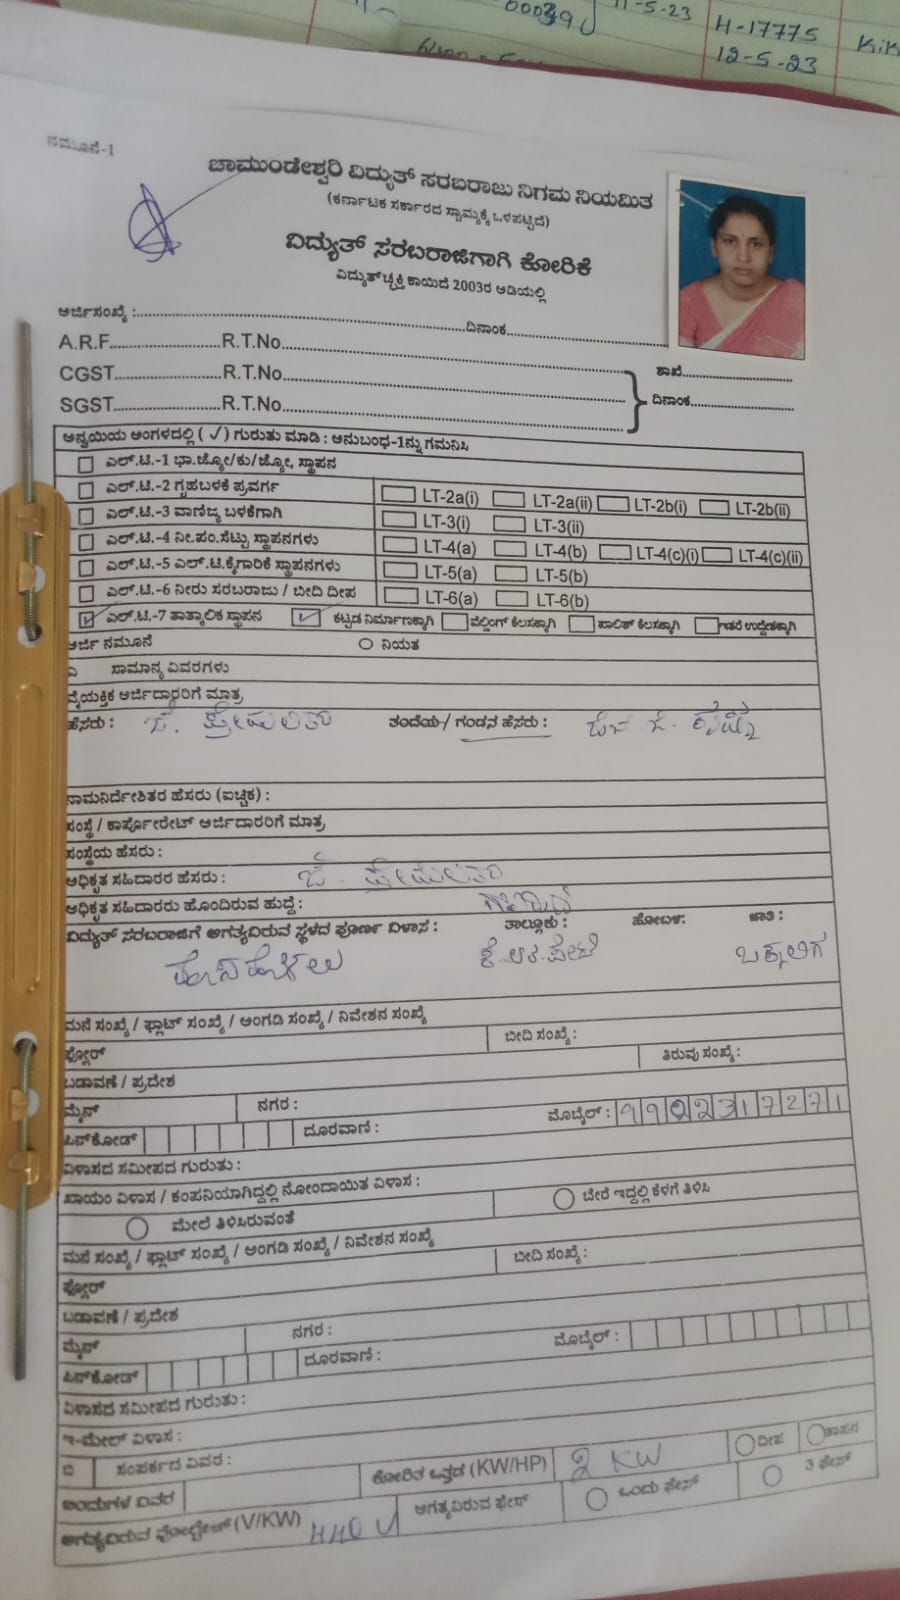 00039
11-5-23
H-17775
12-5-23
ನಮೂನೆ-1
ಚಾಮುಂಡೇಶ್ವರಿ ವಿದ್ಯುತ್ ಸರಬರಾಜು ನಿಗಮ ನಿಯಮಿತ
(ಕರ್ನಾಟಕ ಸರ್ಕಾರದ ಸ್ವಾಮ್ಯಕ್ಕೆ ಒಳಪಟ್ಟಿದೆ)
ವಿದ್ಯುತ್ ಸರಬರಾಜಿಗಾಗಿ ಕೋರಿಕೆ
ವಿದ್ಯುತ್‌ಚ್ಛಕ್ತಿ ಕಾಯಿದೆ 2003ರ ಅಡಿಯಲ್ಲಿ
ಅರ್ಜಿಸಂಖ್ಯೆ :........................ದಿನಾಂಕ........................
A.R.F........................R.T.No........................
CGST........................R.T.No........................ ಶಾಖೆ........................
SGST........................R.T.No........................ ದಿನಾಂಕ........................
ಅನ್ವಯಿಯ ಅಂಗಳದಲ್ಲಿ (✓) ಗುರುತು ಮಾಡಿ : ಅನುಬಂಧ-1ನ್ನು ಗಮನಿಸಿ
ಎಲ್.ಟಿ.-1 ಭಾ.ಜ್ಯೋ/ಕು/ಜ್ಯೋ, ಸ್ಥಾಪನ
ಎಲ್.ಟಿ.-2 ಗೃಹಬಳಕೆ ಪ್ರವರ್ಗ LT-2a(i) LT-2a(ii) LT-2b(i) LT-2b(ii)
ಎಲ್.ಟಿ.-3 ವಾಣಿಜ್ಯ ಬಳಕೆಗಾಗಿ LT-3(i) LT-3(ii)
ಎಲ್.ಟಿ.-4 ನೀ.ಪಂ.ಸೆಟ್ಟು ಸ್ಥಾಪನಗಳು LT-4(a) LT-4(b) LT-4(c)(i) LT-4(c)(ii)
ಎಲ್.ಟಿ.-5 ಎಲ್.ಟಿ.ಕೈಗಾರಿಕೆ ಸ್ಥಾಪನಗಳು LT-5(a) LT-5(b)
ಎಲ್.ಟಿ.-6 ನೀರು ಸರಬರಾಜು / ಬೀದಿ ದೀಪ LT-6(a) LT-6(b)
✓ ಎಲ್.ಟಿ.-7 ತಾತ್ಕಾಲಿಕ ಸ್ಥಾಪನ ✓ ಕಟ್ಟಡ ನಿರ್ಮಾಣಕ್ಕಾಗಿ ವೆಲ್ಡಿಂಗ್ ಕೆಲಸಕ್ಕಾಗಿ ಪಾಲಿಶ್ ಕೆಲಸಕ್ಕಾಗಿ ಇತರೆ ಉದ್ದೇಶಕ್ಕಾಗಿ
ಅರ್ಜಿ ನಮೂನೆ ನಿಯತ
ಎ ಸಾಮಾನ್ಯ ವಿವರಗಳು
ವೈಯಕ್ತಿಕ ಅರ್ಜಿದಾರರಿಗೆ ಮಾತ್ರ
ಹೆಸರು : ಜೆ. ಪ್ರೇಮಲತಾ ತಂದೆಯ/ ಗಂಡನ ಹೆಸರು :
ನಾಮನಿರ್ದೇಶಿತರ ಹೆಸರು (ಐಚ್ಛಿಕ) :
ಸಂಸ್ಥೆ / ಕಾರ್ಪೋರೇಟ್ ಅರ್ಜಿದಾರರಿಗೆ ಮಾತ್ರ
ಸಂಸ್ಥೆಯ ಹೆಸರು :
ಅಧಿಕೃತ ಸಹಿದಾರರ ಹೆಸರು : ಜೆ. ಪ್ರೇಮಲತಾ
ಅಧಿಕೃತ ಸಹಿದಾರರು ಹೊಂದಿರುವ ಹುದ್ದೆ :
ವಿದ್ಯುತ್ ಸರಬರಾಜಿಗೆ ಅಗತ್ಯವಿರುವ ಸ್ಥಳದ ಪೂರ್ಣ ವಿಳಾಸ : ತಾಲ್ಲೂಕು : ಹೋಬಳಿ: ಜಾತಿ :
ಹೊಸಹೊಳಲು ಕೆ.ಆರ್.ಪೇಟೆ ಒಕ್ಕಲಿಗ
ಮನೆ ಸಂಖ್ಯೆ / ಫ್ಲಾಟ್ ಸಂಖ್ಯೆ / ಅಂಗಡಿ ಸಂಖ್ಯೆ / ನಿವೇಶನ ಸಂಖ್ಯೆ
ಫ್ಲೋರ್ ಬೀದಿ ಸಂಖ್ಯೆ :
ಬಡಾವಣೆ / ಪ್ರದೇಶ ತಿರುವು ಸಂಖ್ಯೆ :
ಮೈನ್ ನಗರ : ಮೊಬೈಲ್ : 9902317271
ಪಿನ್‌ಕೋಡ್ ದೂರವಾಣಿ :
ವಿಳಾಸದ ಸಮೀಪದ ಗುರುತು :
ಖಾಯಂ ವಿಳಾಸ / ಕಂಪನಿಯಾಗಿದ್ದಲ್ಲಿ ನೋಂದಾಯಿತ ವಿಳಾಸ :
ಮೇಲೆ ತಿಳಿಸಿರುವಂತೆ ಬೇರೆ ಇದ್ದಲ್ಲಿ ಕೆಳಗೆ ತಿಳಿಸಿ
ಮನೆ ಸಂಖ್ಯೆ / ಫ್ಲಾಟ್ ಸಂಖ್ಯೆ / ಅಂಗಡಿ ಸಂಖ್ಯೆ / ನಿವೇಶನ ಸಂಖ್ಯೆ
ಫ್ಲೋರ್ ಬೀದಿ ಸಂಖ್ಯೆ :
ಬಡಾವಣೆ / ಪ್ರದೇಶ
ಮೈನ್ ನಗರ : ಮೊಬೈಲ್ :
ಪಿನ್‌ಕೋಡ್ ದೂರವಾಣಿ :
ವಿಳಾಸದ ಸಮೀಪದ ಗುರುತು :
ಇ-ಮೇಲ್ ವಿಳಾಸ :
ಬಿ ಸಂಪರ್ಕದ ವಿವರ : ಕೋರಿತ ಒತ್ತಡ (KW/HP) 2 KW ದೀಪ ತಾಪನ
ಅಂದುಗಳ ವಿವರ
ಅಗತ್ಯವಿರುವ ವೋಲ್ಟೇಜ್ (V/KW) 440 V ಅಗತ್ಯವಿರುವ ಫೇಸ್ ಒಂದು ಫೇಸ್ 3 ಫೇಸ್